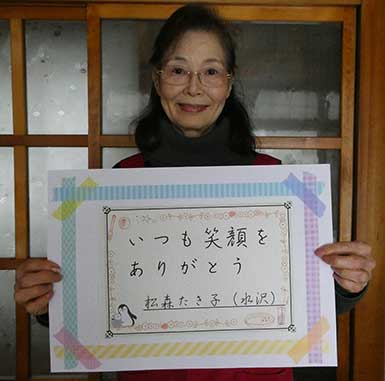 いつも笑顔を
ありがとう
松森たき子（水沢）